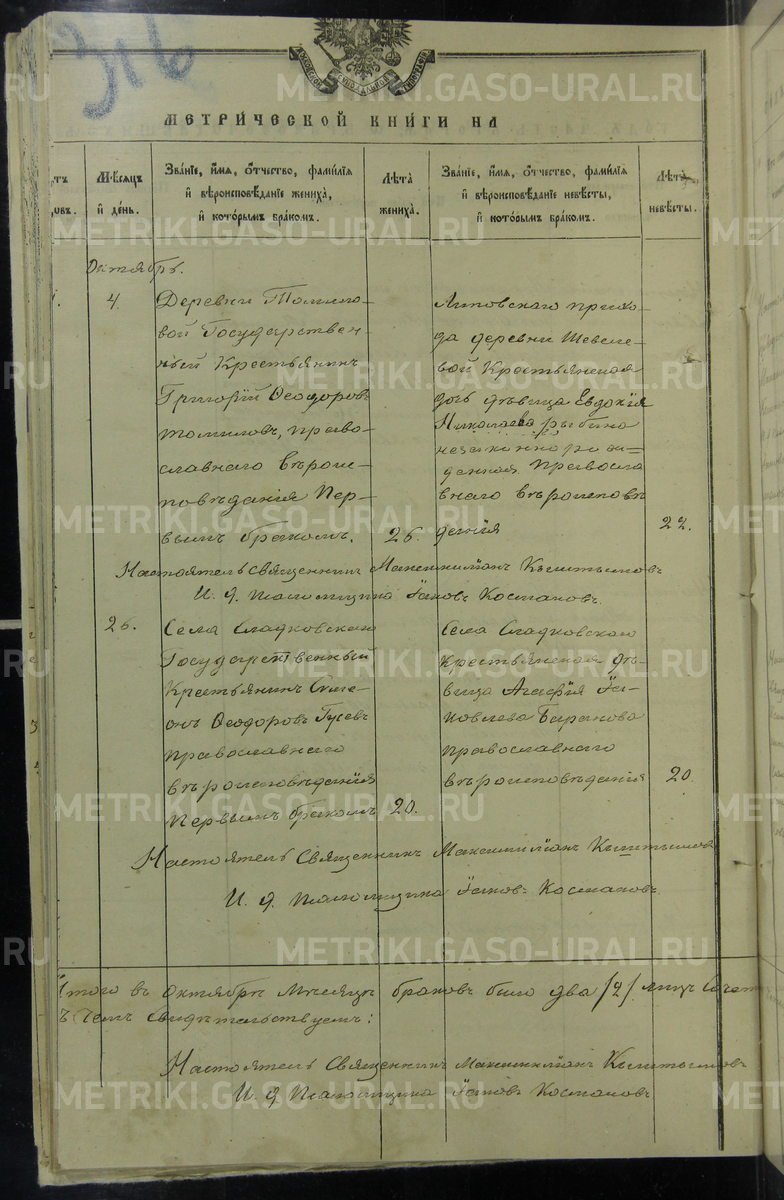 316
МЕТРИ́ЧЕСКОЙ КНИ́ГИ НА
Мѣ́сяцъ
и҆ де́нь.
Зва́нїе, и҆́мя, ѻ҆́тчество, фами́лїя
и҆ вѣроисповѣ́данїе жениха̀,
и҆ кото́рымъ бра́комъ.
Лѣта̀
жениха̀.
Зва́нїе, и҆́мя, ѻ҆́тчество, фами́лїя
и҆ вѣроисповѣ́данїе невѣ́сты,
и҆ кото́рымъ бра́комъ.
Лѣта̀
невѣ́сты.
Октябрь.
4
Деревни Томило-
вой Государствен-
ный Крестьянинъ
Григорій Ѳеодоровъ
Томиловъ, право-
славнаго вѣроис-
повѣданія пер-
вымъ бракомъ.
26.
прихо-
да деревни Шевеле-
вой Крестьянская
дочь дѣвица Евдокія
Николаева Рыбина
незаконнорож-
денная Православ-
внаго вѣроисповѣ
данія
22.
Настоятель Священникъ Максимиліанъ
И. д. Псаломщика Іаковъ Космаковъ.
26.
Села Сладковскаго
Государственный
Крестьянинъ Симе-
онъ Ѳеодоровъ Гусевъ
православнаго
вѣроисповѣданія
первымъ бракомъ
20.
Села Сладковскаго
Крестьянская дѣ-
вица Агафія Іа-
ковлева Баранова
православнаго
вѣроисповѣданія
20
Настоятель Священникъ Максимиліанъ
И. д. Псаломщика Іаковъ Космаковъ.
Итого въ Октябрѣ Мѣсяцѣ браковъ было два /2/
чемъ Свидѣтельствуемъ:
Настоятель Священникъ Максимиліанъ
И. д. Псаломщика Іаковъ Космаковъ
METRIKI.GASO-URAL.RU